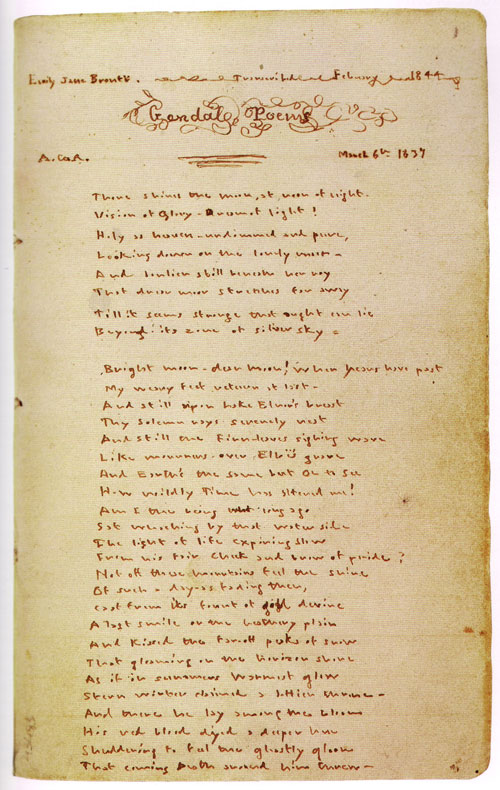 Emily Jane Brontë. Transcribed February 1844
Gondal Poems
A.G.A. March 6th 1837
There shines the moon, at noon of night.
Vision of Glory - Dream of light!
Holy as heaven - undimmed and pure,
Looking down on the lonely moor -
And lonlier still beneath her ray
That drear moor stretches far away
Till it seems strange that aught can lie
Beyond its zone of silver sky -
Bright moon - dear moon! when years have past
My weary feet return at last -
And still upon Lake Elnor's breast
Thy solemn rays serenely rest
And still the Fern-leaves sighing wave
Like mourners over Elbë's grave
And Earth's the same but Oh to see
How wildly Time has altered me!
Am I the being who long ago
Sat watching by that water side
The light of life expiring slow
From his fair cheek and brow of pride?
Not oft these mountains feel the shine
Of such a day - as fading then,
Cast from its fount of gold devine
A last smile on the heathery plain
And kissed the far-off peaks of snow
That gleaming on the horizon shone
As if in summers warmest glow
Stern winter claimed a loftier throne -
And there he lay among the bloom
His red blood dyed a deeper hue
Shuddering to feel the ghostly gloom
That coming Death around him threw -